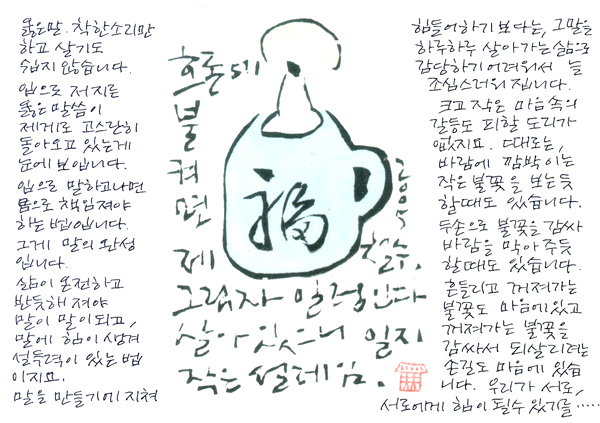 옳은말. 착한소리만
하고 살기도
쉽지 않습니다.
입으로 저지른
옳은 말씀이
제게로 고스란히
돌아오고 있는게
눈에 보입니다.
입으로 말하고나면
몸으로 책임져야
하는 법입니다.
그게 말의 완성
입니다.
삶이 온전하고
반듯해져야
말이 말이되고,
말에 힘이 생겨
설득력이 있는 법
이지요.
말을 만들기에 지쳐
불켜면 제
福
2005 철수.
그림자 일렁인다
살아 있으니 일지
작은 설레임.
힘들어하기 보다는, 그말을
하루하루 살아가는 삶으로
감당하기 어려워서 늘
조심스러워 집니다.
크고 작은 마음속의
갈등도 피할 도리가
없지요. 때로는,
바람에 깜박이는
작은 불꽃을 보는듯
할때도 있습니다.
두손으로 불꽃을 감싸
바람을 막아 주듯
할때도 있습니다.
흔들리고 꺼져가는
불꽃도 마음에있고
꺼져가는 불꽃을
감싸서 되살리려는
손길도 마음에 있습
니다. 우리가 서로,
서로에게 힘이 될수 있기를.....